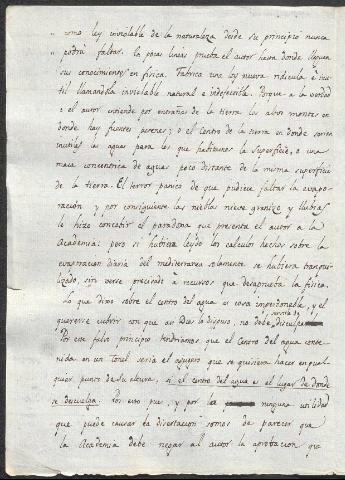 " como ley inviolable de la naturaleza desde su principio nunca
" podrá faltar. En pocas lineas prueba el autor hasta donde llegan
sus conocimientos en fisica. Fabrica una ley nueva ridicula é inu-
til llamandola inviolable natural e indefectible. Porque a la verdad
o el autor entiende por entrañas de la tierra los altos montes en
donde hay fuentes perenes; o el centro de la tierra en donde serian
inutiles las aguas para los que habitamos la superficie, o una
masa concentrica de aguas poco distante de la misma superficie
de la tierra. El terror panico de que pudiese faltar la evapo-
racion y por consiguiente las nieblas nieve granizo y llubias
le hizo concebir el paradoxa que presenta el autor a la
Academia: pero si hubiera leydo los calculos hechos sobre la
evaporacion diaria del mediterraneo solamente se hubiera tranqui-
lizado, sin verse precisado a recursos que desaprueba la fisica.
Lo que dixo sobre el centro del agua es cosa imperdonable, y el
quererse cubrir con que asi Dios lo dispuso, no debe servirle de disculpa
Por este falso principio tendriamos que el centro del agua conte-
nida en un tonel seria el agujero que se quisiera hacer en qual-
quier punto de su altura, si el centro del agua es el lugar de donde
se descuelga. Por esto pues, y por la ninguna utilidad
que puede causar la disertacion somos de parecer que
la Academia debe negar al autor la aprobacion que